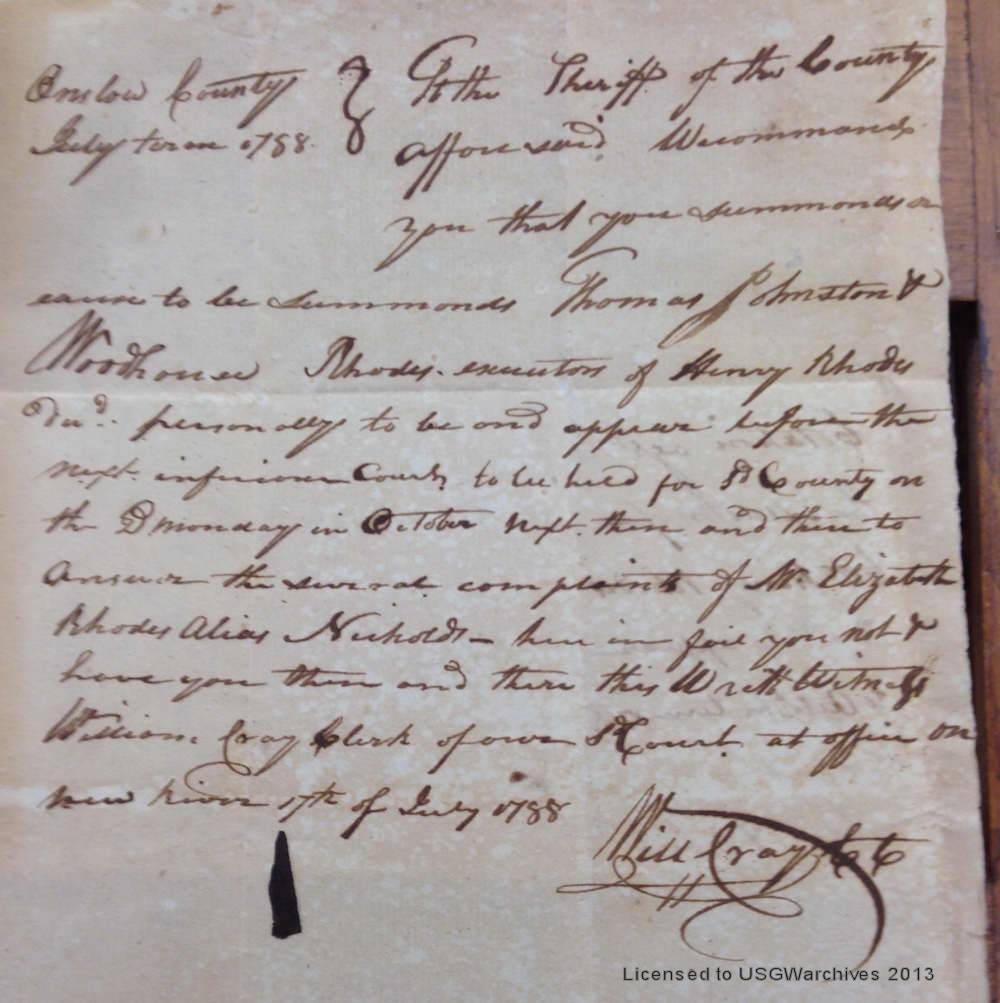 Onslow County } To the Sheriff of the County
July term 1788. afforesaid Wecommand
you that you summonds or
cause to be summonds Thomas Johnston &
Woodhouse Rhodes executors of Henry Rhodes
Decd. personally to be and appear before the
next inferiour Court to be held for Sd County on
the 2d monday in October next. then and there to
answer the several complaints of Mr Elizabeth
Rhodes Alias Nicholds - here in fail you not &
have you then and there this Writt Witness
William Cray Clerk of our Sd Court at office on
new River 17th of July 1788
Will Cray CC
Licensed to USGWarchives 2013